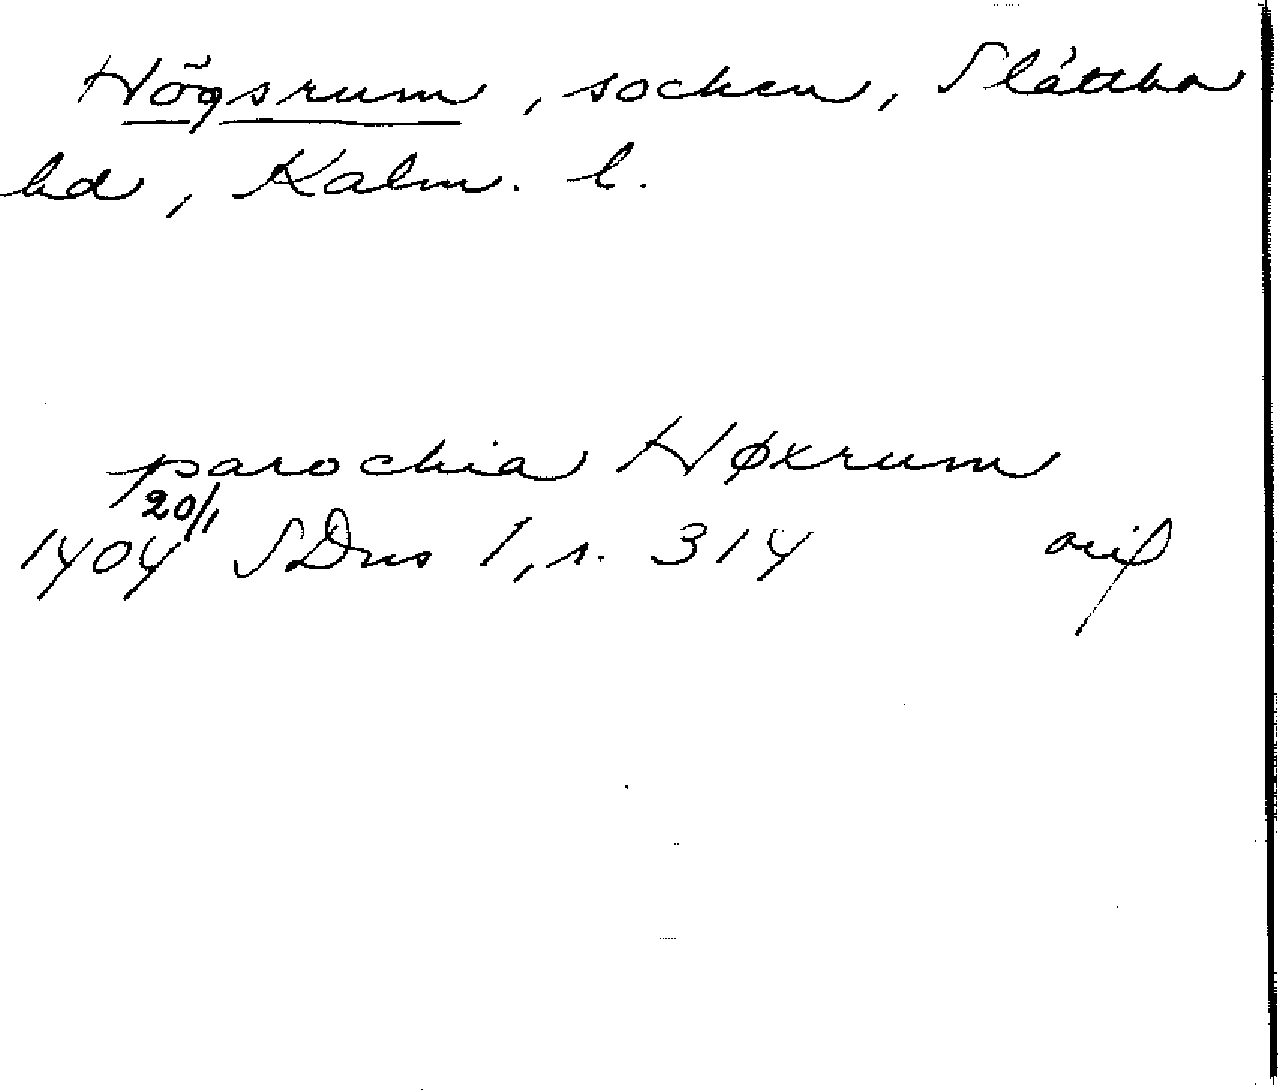 Högsrum, socken, Slättbo
hd, Kalm. l.
parochia Høxrum
20/1
1404 SDns 1, s. 314 orig